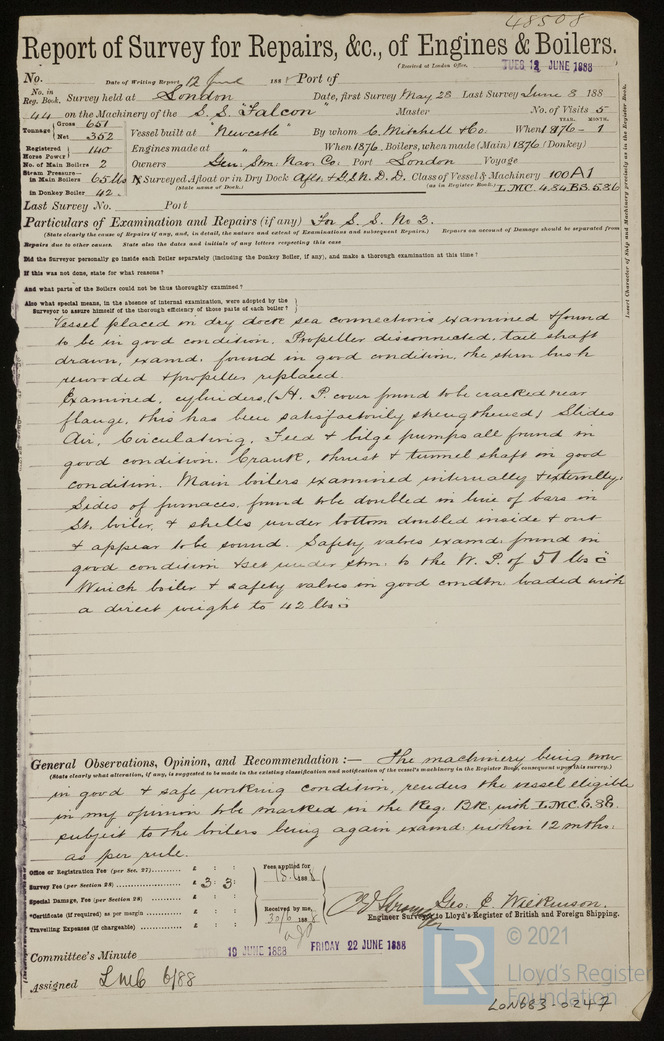 48508
Report of Survey for Repairs, &c., of Engines & Boilers.
(Received at London Office, TUES 12 JUNE 1888
No. Date of Writing Report 12 June 188 Port of
No. in Reg. Book. Survey held at London Date, first Survey May 28 Last Survey June 8 188
44 on the Machinery of the S.S. "Falcon" Master No. of Visits 5
Tonnage Gross 651 Net 352 Vessel built at "Newcastle" By whom C. Mitchell & Co. When 1876 - 1 YEAR. MONTH.
Registered Horse Power 140 Engines made at " When 1876. Boilers, when made (Main) 1876 (Donkey)
No. of Main Boilers 2 Owners Gen. Stm. Nav. Co. Port London Voyage
Steam Pressure— in Main Boilers 65 lbs Surveyed Afloat or in Dry Dock Aflt. & G.I.N. D. D. Class of Vessel & Machinery 100A1
in Donkey Boiler 42. (State name of Dock.) (as in Register Book.) L.M.C. 4.84.B3.5.86
Last Survey No. Port
Particulars of Examination and Repairs (if any) For S. S. No 3.
(State clearly the cause of Repairs if any, and, in detail, the nature and extent of Examinations and subsequent Repairs.) Repairs on account of Damage should be separated from
Repairs due to other causes. State also the dates and initials of any letters respecting this case
Did the Surveyor personally go inside each Boiler separately (including the Donkey Boiler, if any), and make a thorough examination at this time?
If this was not done, state for what reasons?
And what parts of the Boilers could not be thus thoroughly examined?
Also what special means, in the absence of internal examination, were adopted by the
Surveyor to assure himself of the thorough efficiency of those parts of each boiler?
Vessel placed in dry dock sea connections examined & found
to be in good condition. Propeller disconnected, tail shaft
drawn, examd. found in good condition, the stern bush
rewooded & propeller replaced.
Examined, cylinders, (H. P. cover found to be cracked near
flange, this has been satisfactorily strengthened) Slides
Air, Circulating, Feed & bilge pumps all found in
good condition. Crank, thrust & tunnel shaft in good
condition. Main boilers examined internally & externally.
Sides of furnaces found to be doubled in line of bars in
St. boiler, & shells under bottom doubled inside & out
& appear to be sound. Safety valves examd. found in
good condition & set under stm. to the W. P. of 51 lbs
Winch boiler & safety valves in good condtn. loaded with
a direct weight to 42 lbs
General Observations, Opinion, and Recommendation :— The machinery being now
(State clearly what alteration, if any, is suggested to be made in the existing classification and notification of the vessel's machinery in the Register Book, consequent upon this survey.)
in good & safe working condition, renders the vessel eligible
in my opinion to be marked in the Reg. Bk. with L.M.C. 6.88.
subject to the boilers being again examd. within 12 mths.
as per rule.
Office or Registration Fee (per Sec. 27) £ : :
Survey Fee (per Section 28) £ 3 : 3 :
Special Damage, Fee (per Section 28) £ : :
*Certificate (if required) as per margin £ : :
Travelling Expenses (if chargeable) £ : :
Fees applied for
18.6.1888
Received by me,
30/6 1888
Geo. C. Wilkinson.
Engineer Surveyor to Lloyd's Register of British and Foreign Shipping.
Committee's Minute 19 JUNE 1888 FRIDAY 22 JUNE 1888
Assigned LMC 6/88
Insert Character of Ship and Machinery precisely as in the Register Book.
LR
© 2021
Lloyd's Register
Foundation
LON683-0247